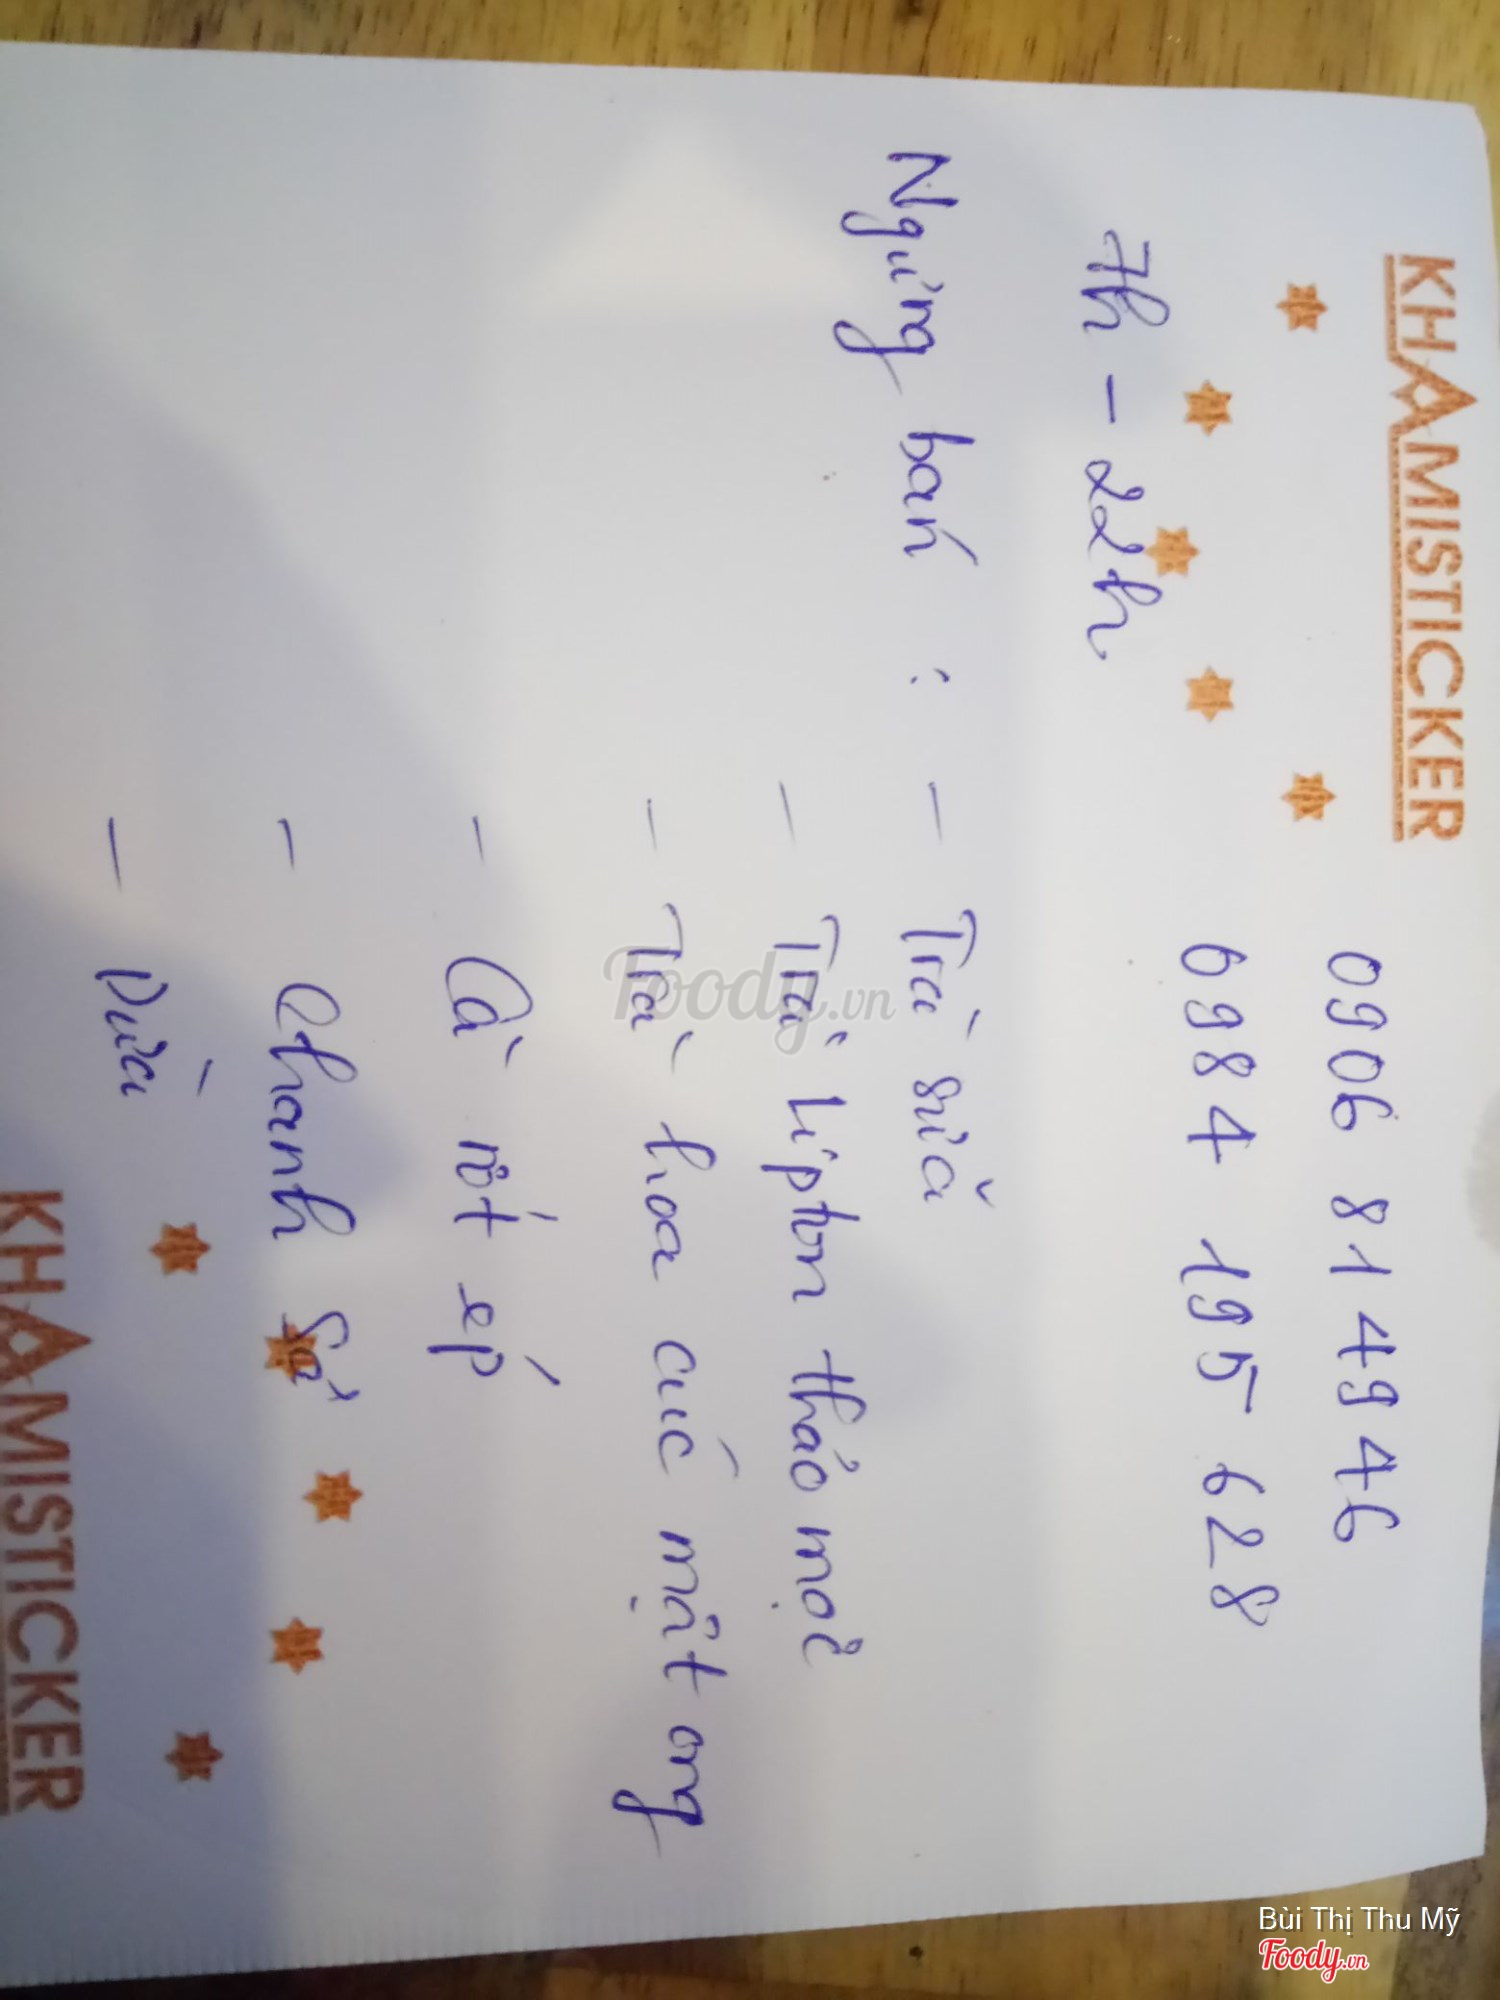 KHAMISTICKER
0906 81 49 46
6984 195 628
7h - 22h
Ngừng bán : - Trà sữa
- Trà lipton thảo mọc
- Trà hoa cúc mật ong
- Cà rốt ép
- Chanh sả
- Dừa
KHAMISTICKER
Foody.vn
Bùi Thị Thu Mỹ
Foody.vn